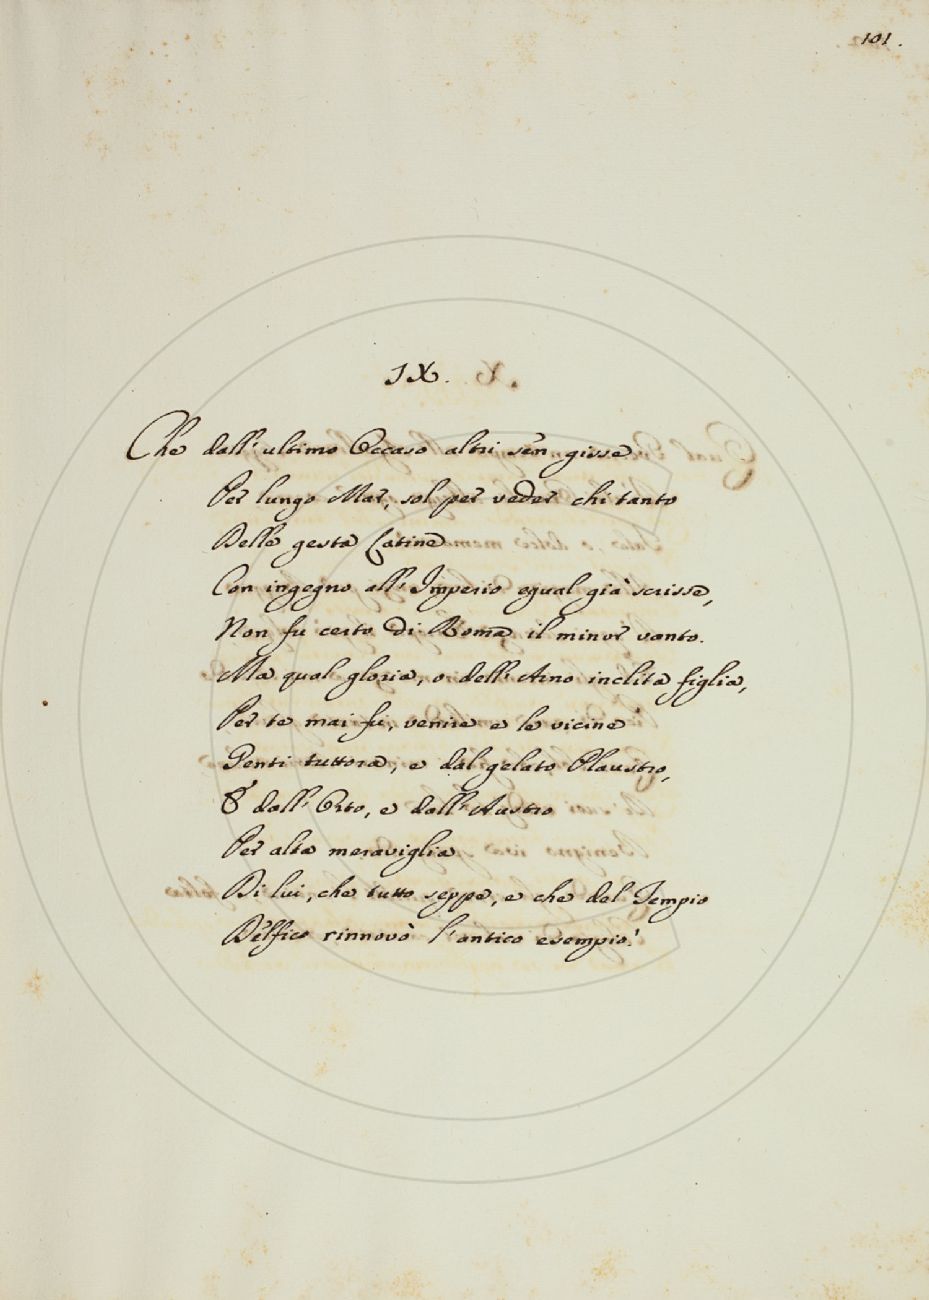 101.
IX.
Che dall' ultimo Occaso altri sen gisse
Per lungo Mar, sol per veder chi tanto
Delle gesta Latine
Con ingegno all' Imperio egual già scrisse,
Non fu certo di Roma il minor vanto.
Ma qual gloria, o dell' Arno inclita figlia,
Per te mai fu, venire e le vicine
Genti tuttora, e dal gelato Plaustro,
E dall' Orto, e dall' Austro
Per alta meraviglia
Di lui, che tutto seppe, e che del Tempio
Delfico rinnovò l' antico esempio!